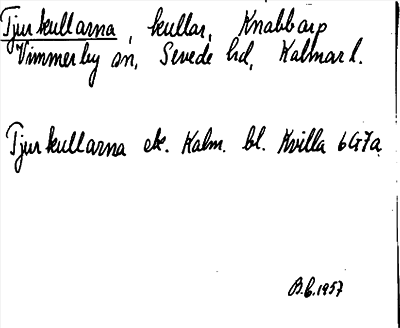 Tjurkullarna, kullar, Knabbarp
Vimmerby sn, Sevede hd, Kalmar l.
Tjurkullarna ek. Kalm. bl. Kvilla 6G7a
B.E. 1957